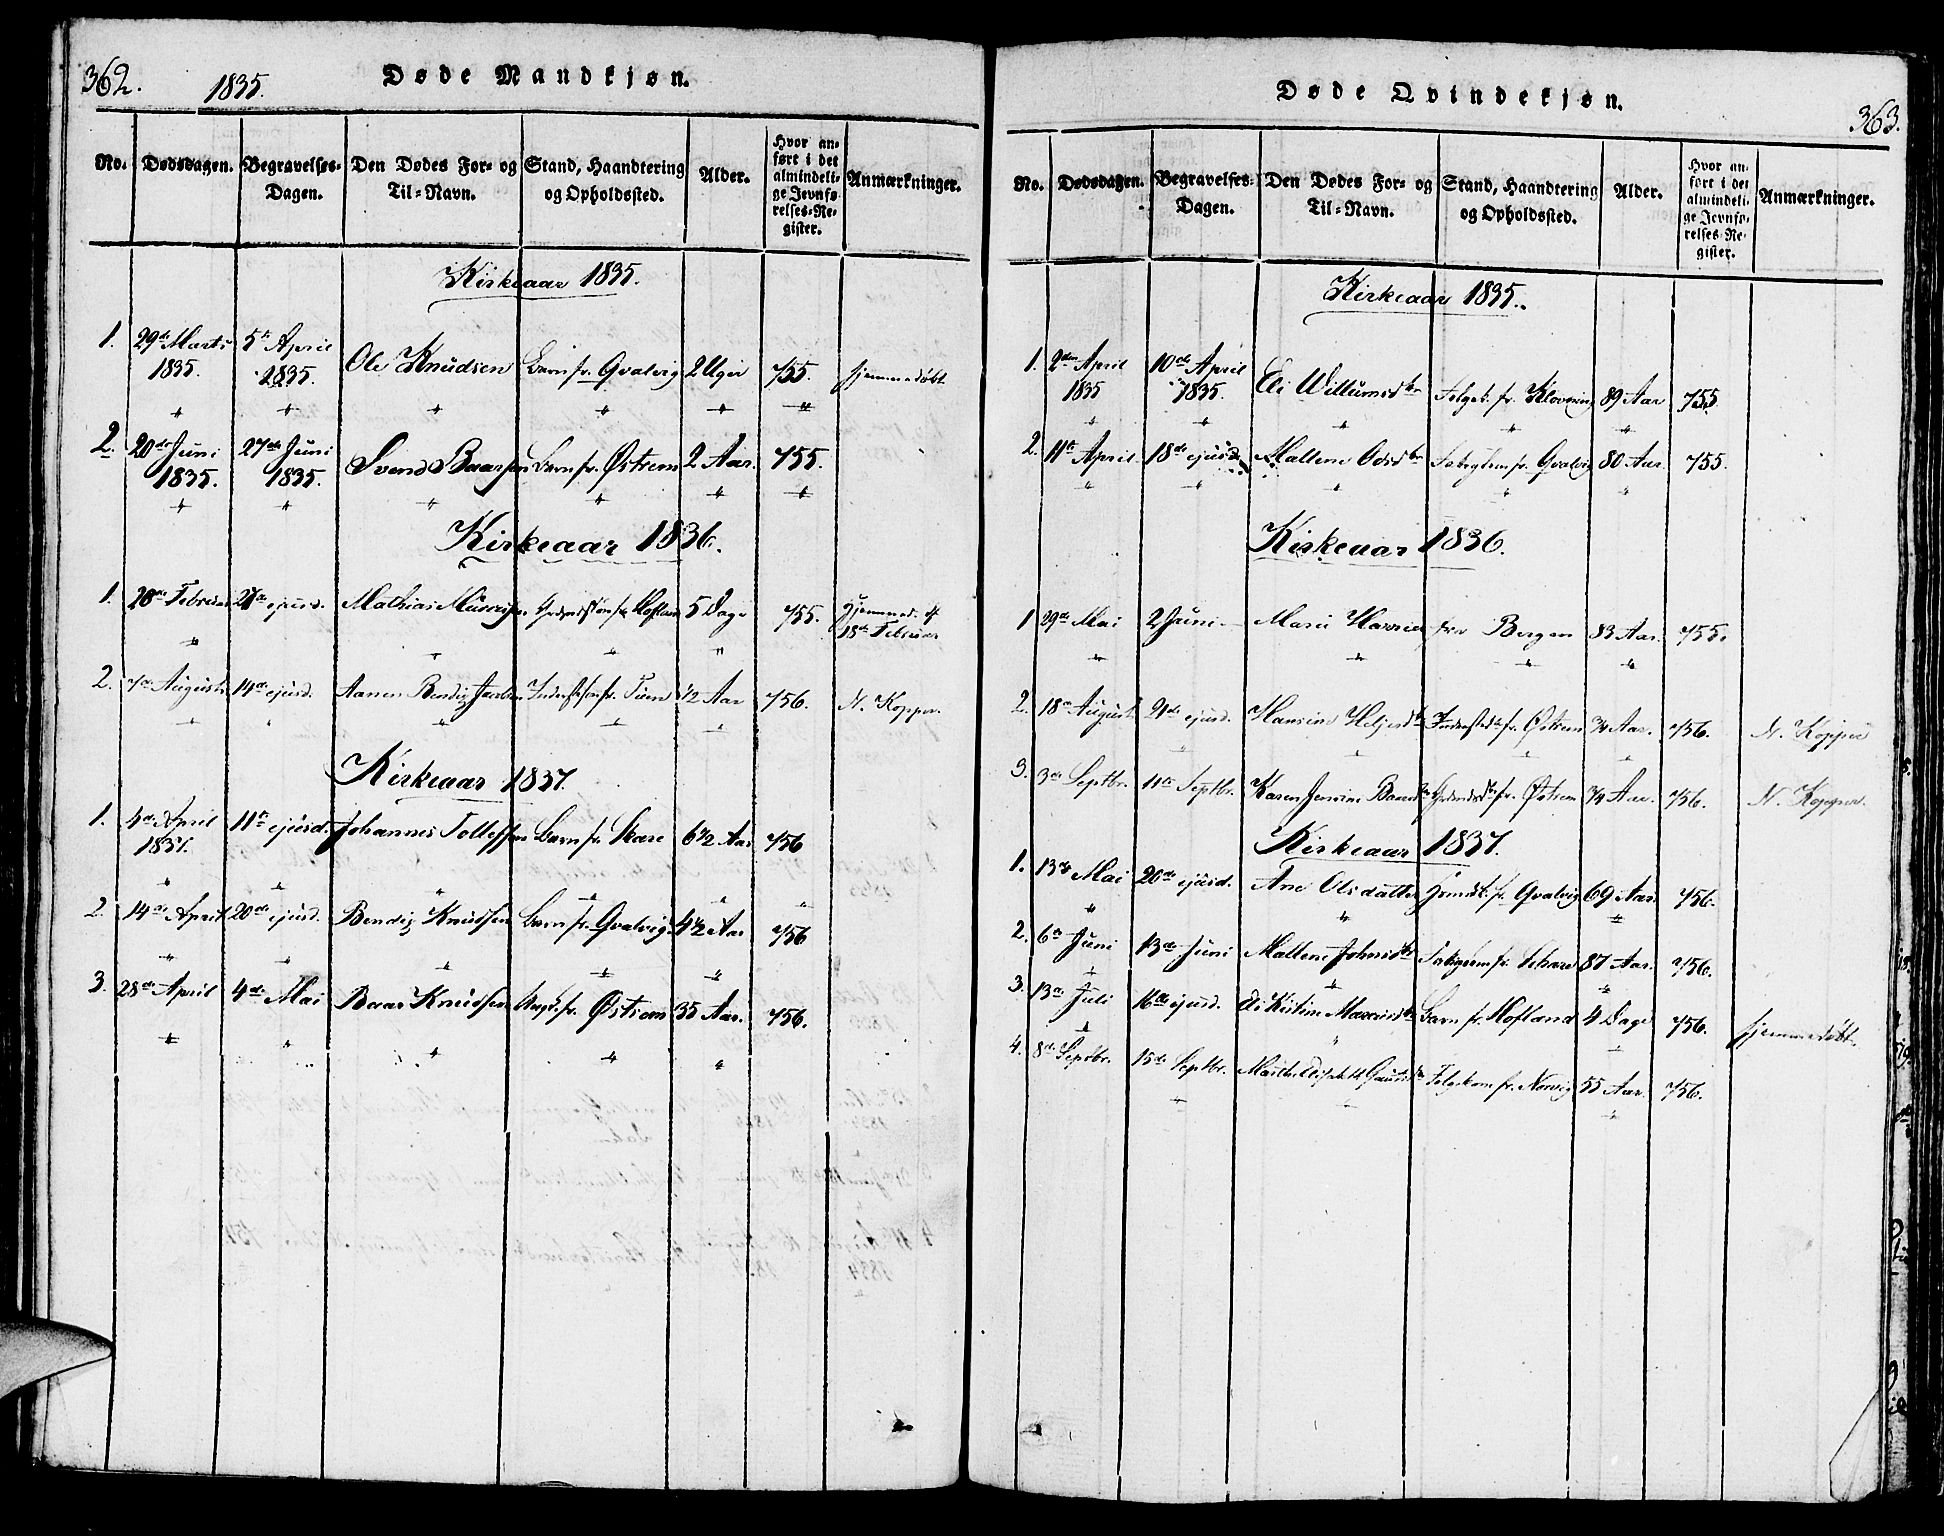 362.
1835.
Døde Mandkjøn.
No. Dødsdagen. Begravelses-Dagen. Den Dødes For- og Til-Navn. Stand, Haandtering og Opholdssted. Alder. Hvor anført i det almindelige Jevnførelses-Register. Anmærkninger.
Kirkeaar 1835.
1. 29de Marts 1835. 5te April 1835. Ole Knudsen Barn fr. Qvalvig 2 Uger 755. hjemmedøbt
2. 20de Juni 1835. 27de Juni 1835. Svend Baarsen Barn fr. Østrem 2 Aar. 755.
Kirkeaar 1836.
1. 28de Februar ejusd. Mathias fr. Hofland 5 Dage 755. Hjemmed. 18de Februar
2. 7de August 14de ejusd. Aanen Bendix Jacobsen fr. Tuen 1/2 Aar 756. N. Kopper.
Kirkeaar 1837.
1. 4de April 1837. 11te ejusd. Johannes Tollefsen Barn fr. Skare 6 1/2 Aar 756
2. 14de April 20de ejusd. Bendix Knudsen Barn fr. Qvalvig 4 1/2 Aar 756
3. 28de April 4de Mai Baar Knudsen fr. Østrem 35 Aar. 756.
Døde Qvindekjøn.
363.
No. Dødsdagen. Begravelses-Dagen. Den Dødes For- og Til-Navn. Stand, Haandtering og Opholdssted. Alder. Hvor anført i det almindelige Jevnførelses-Register. Anmærkninger.
Kirkeaar 1835.
1. 2den April 1835 10de April 1835. Eli Willumsdtr fr. Klovning 89 Aar 755
2. 11te April. 18de ejusd. Mallene Odsdtr fr. Qvalvig 80 Aar. 755.
Kirkeaar 1836.
1 29de Mai 2 Juni Maria fra Bergen 83 Aar. 755.
2. 18de August 21de ejusd. Hansine Heljesdtr fr. Østrem 3/4 Aar. 756. N. Kopper
3. 3de Septbr. 11te Septbr. Karen Jensine Baarsdtr fr. Østrem 3/4 Aar. 756. N. Kopper.
Kirkeaar 1837.
1. 13de Mai 20de ejusd. Ane Olsdatter fr. Qvalvig 69 Aar. 756.
2. 6te Juni 13de Juni Mallene Johnsdtr fr. Schare 87 Aar. 756.
3. 13de Juli 16de ejusd. Kistine Barn fr. Hofland 4 Dage 756. hjemmedøbt.
4. 8de Septbr. 15de Septbr. Marthe Elisabeth fr. Norvig 55 Aar. 756.